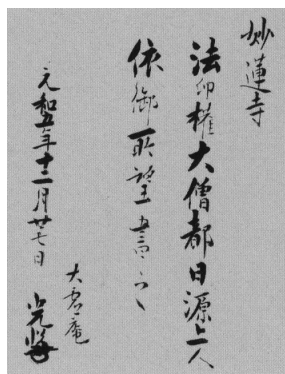 妙蓮寺
法印権大僧都日源上人
依御所望書之
元和五年十二月廿七日
大虚庵
光悦